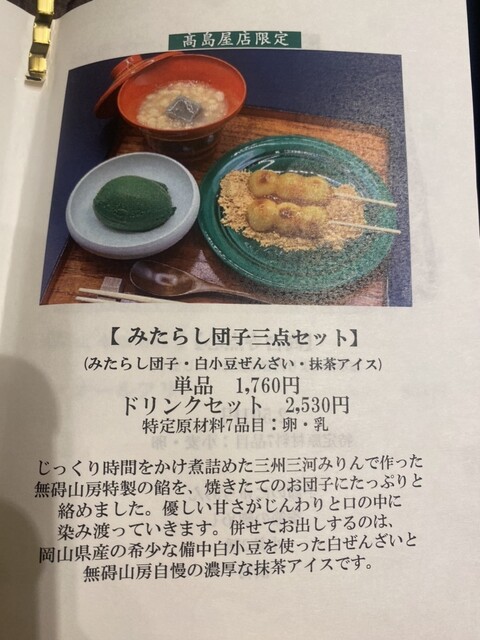 髙島屋店限定
【 みたらし団子三点セット】
(みたらし団子・白小豆ぜんざい・抹茶アイス)
単品 1,760円
ドリンクセット 2,530円
特定原材料7品目：卵・乳
じっくり時間をかけ煮詰めた三州三河みりんで作った
無碍山房特製の餡を、焼きたてのお団子にたっぷりと
絡めました。優しい甘さがじんわりと口の中に
染み渡っていきます。併せてお出しするのは、
岡山県産の希少な備中白小豆を使った白ぜんざいと
無碍山房自慢の濃厚な抹茶アイスです。